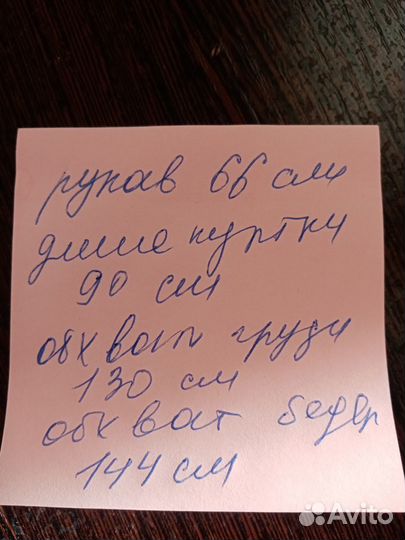 рукав 66 см
длина куртки
90 см
обхват груди
130 см
обхват бедер
144 см
Avito